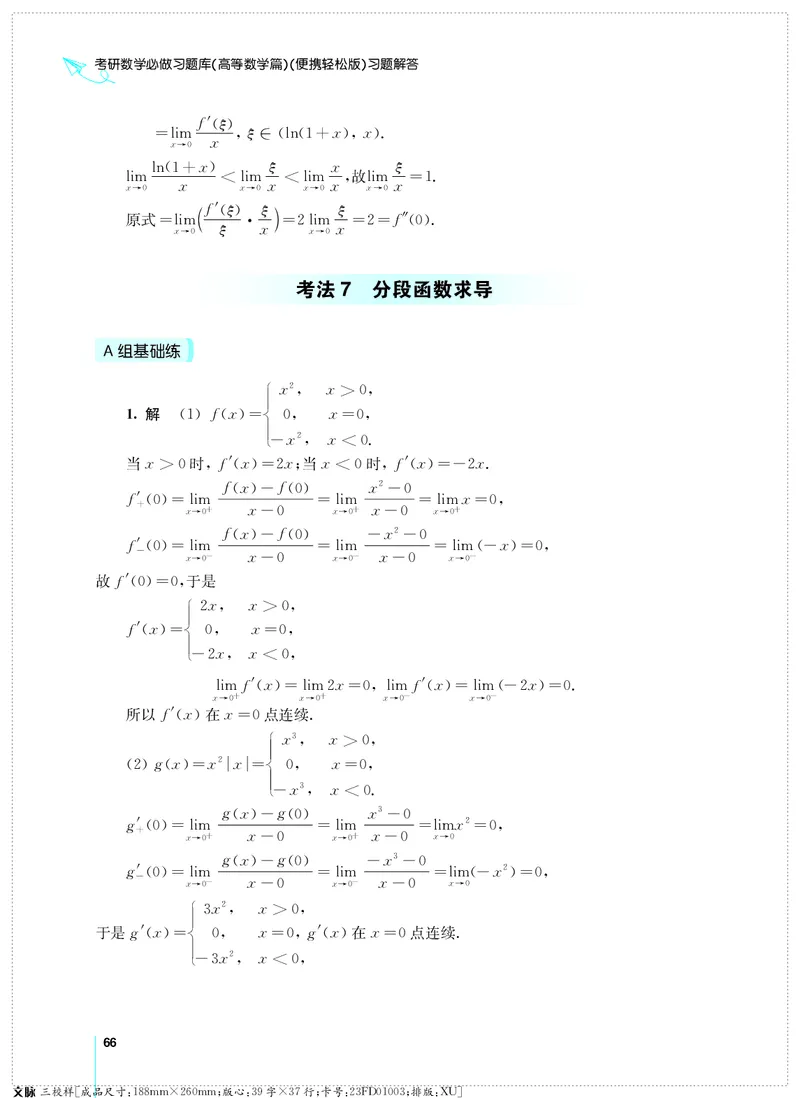 考研数学必做习题库(高等数学篇)(便携轻松版)习题解答
=lim_{x→0} f′(ξ)/x, ξ∈(ln(1+x), x).
lim_{x→0} ln(1+x)/x < lim_{x→0} ξ/x < lim_{x→0} x/x,故lim_{x→0} ξ/x =1.
原式=lim_{x→0}(f′(ξ)/ξ · ξ/x)=2 lim_{x→0} ξ/x =2=f″(0).
考法 7 分段函数求导
A 组基础练
1. 解 (1) f(x)={ x², x>0, 0, x=0, -x², x<0.
当 x>0 时, f′(x)=2x;当 x<0 时, f′(x)=-2x.
f′₊(0)=lim_{x→0⁺} (f(x)-f(0))/(x-0) =lim_{x→0⁺} (x²-0)/(x-0) =lim_{x→0⁺} x=0,
f′₋(0)=lim_{x→0⁻} (f(x)-f(0))/(x-0) =lim_{x→0⁻} (-x²-0)/(x-0) =lim_{x→0⁻}(-x)=0,
故 f′(0)=0,于是
f′(x)={ 2x, x>0, 0, x=0, -2x, x<0,
lim_{x→0⁺} f′(x)=lim_{x→0⁺} 2x=0, lim_{x→0⁻} f′(x)=lim_{x→0⁻}(-2x)=0.
所以 f′(x) 在 x=0 点连续.
(2) g(x)=x²|x|={ x³, x>0, 0, x=0, -x³, x<0.
g′₊(0)=lim_{x→0⁺} (g(x)-g(0))/(x-0) =lim_{x→0⁺} (x³-0)/(x-0) =lim_{x→0} x²=0,
g′₋(0)=lim_{x→0⁻} (g(x)-g(0))/(x-0) =lim_{x→0⁻} (-x³-0)/(x-0) =lim_{x→0}(-x²)=0,
于是 g′(x)={ 3x², x>0, 0, x=0, -3x², x<0, g′(x) 在 x=0 点连续.
66
文脉 三校样[成品尺寸:188mm×260mm;版心:39 字×37 行;卡号:23FD01003;排版:XU]